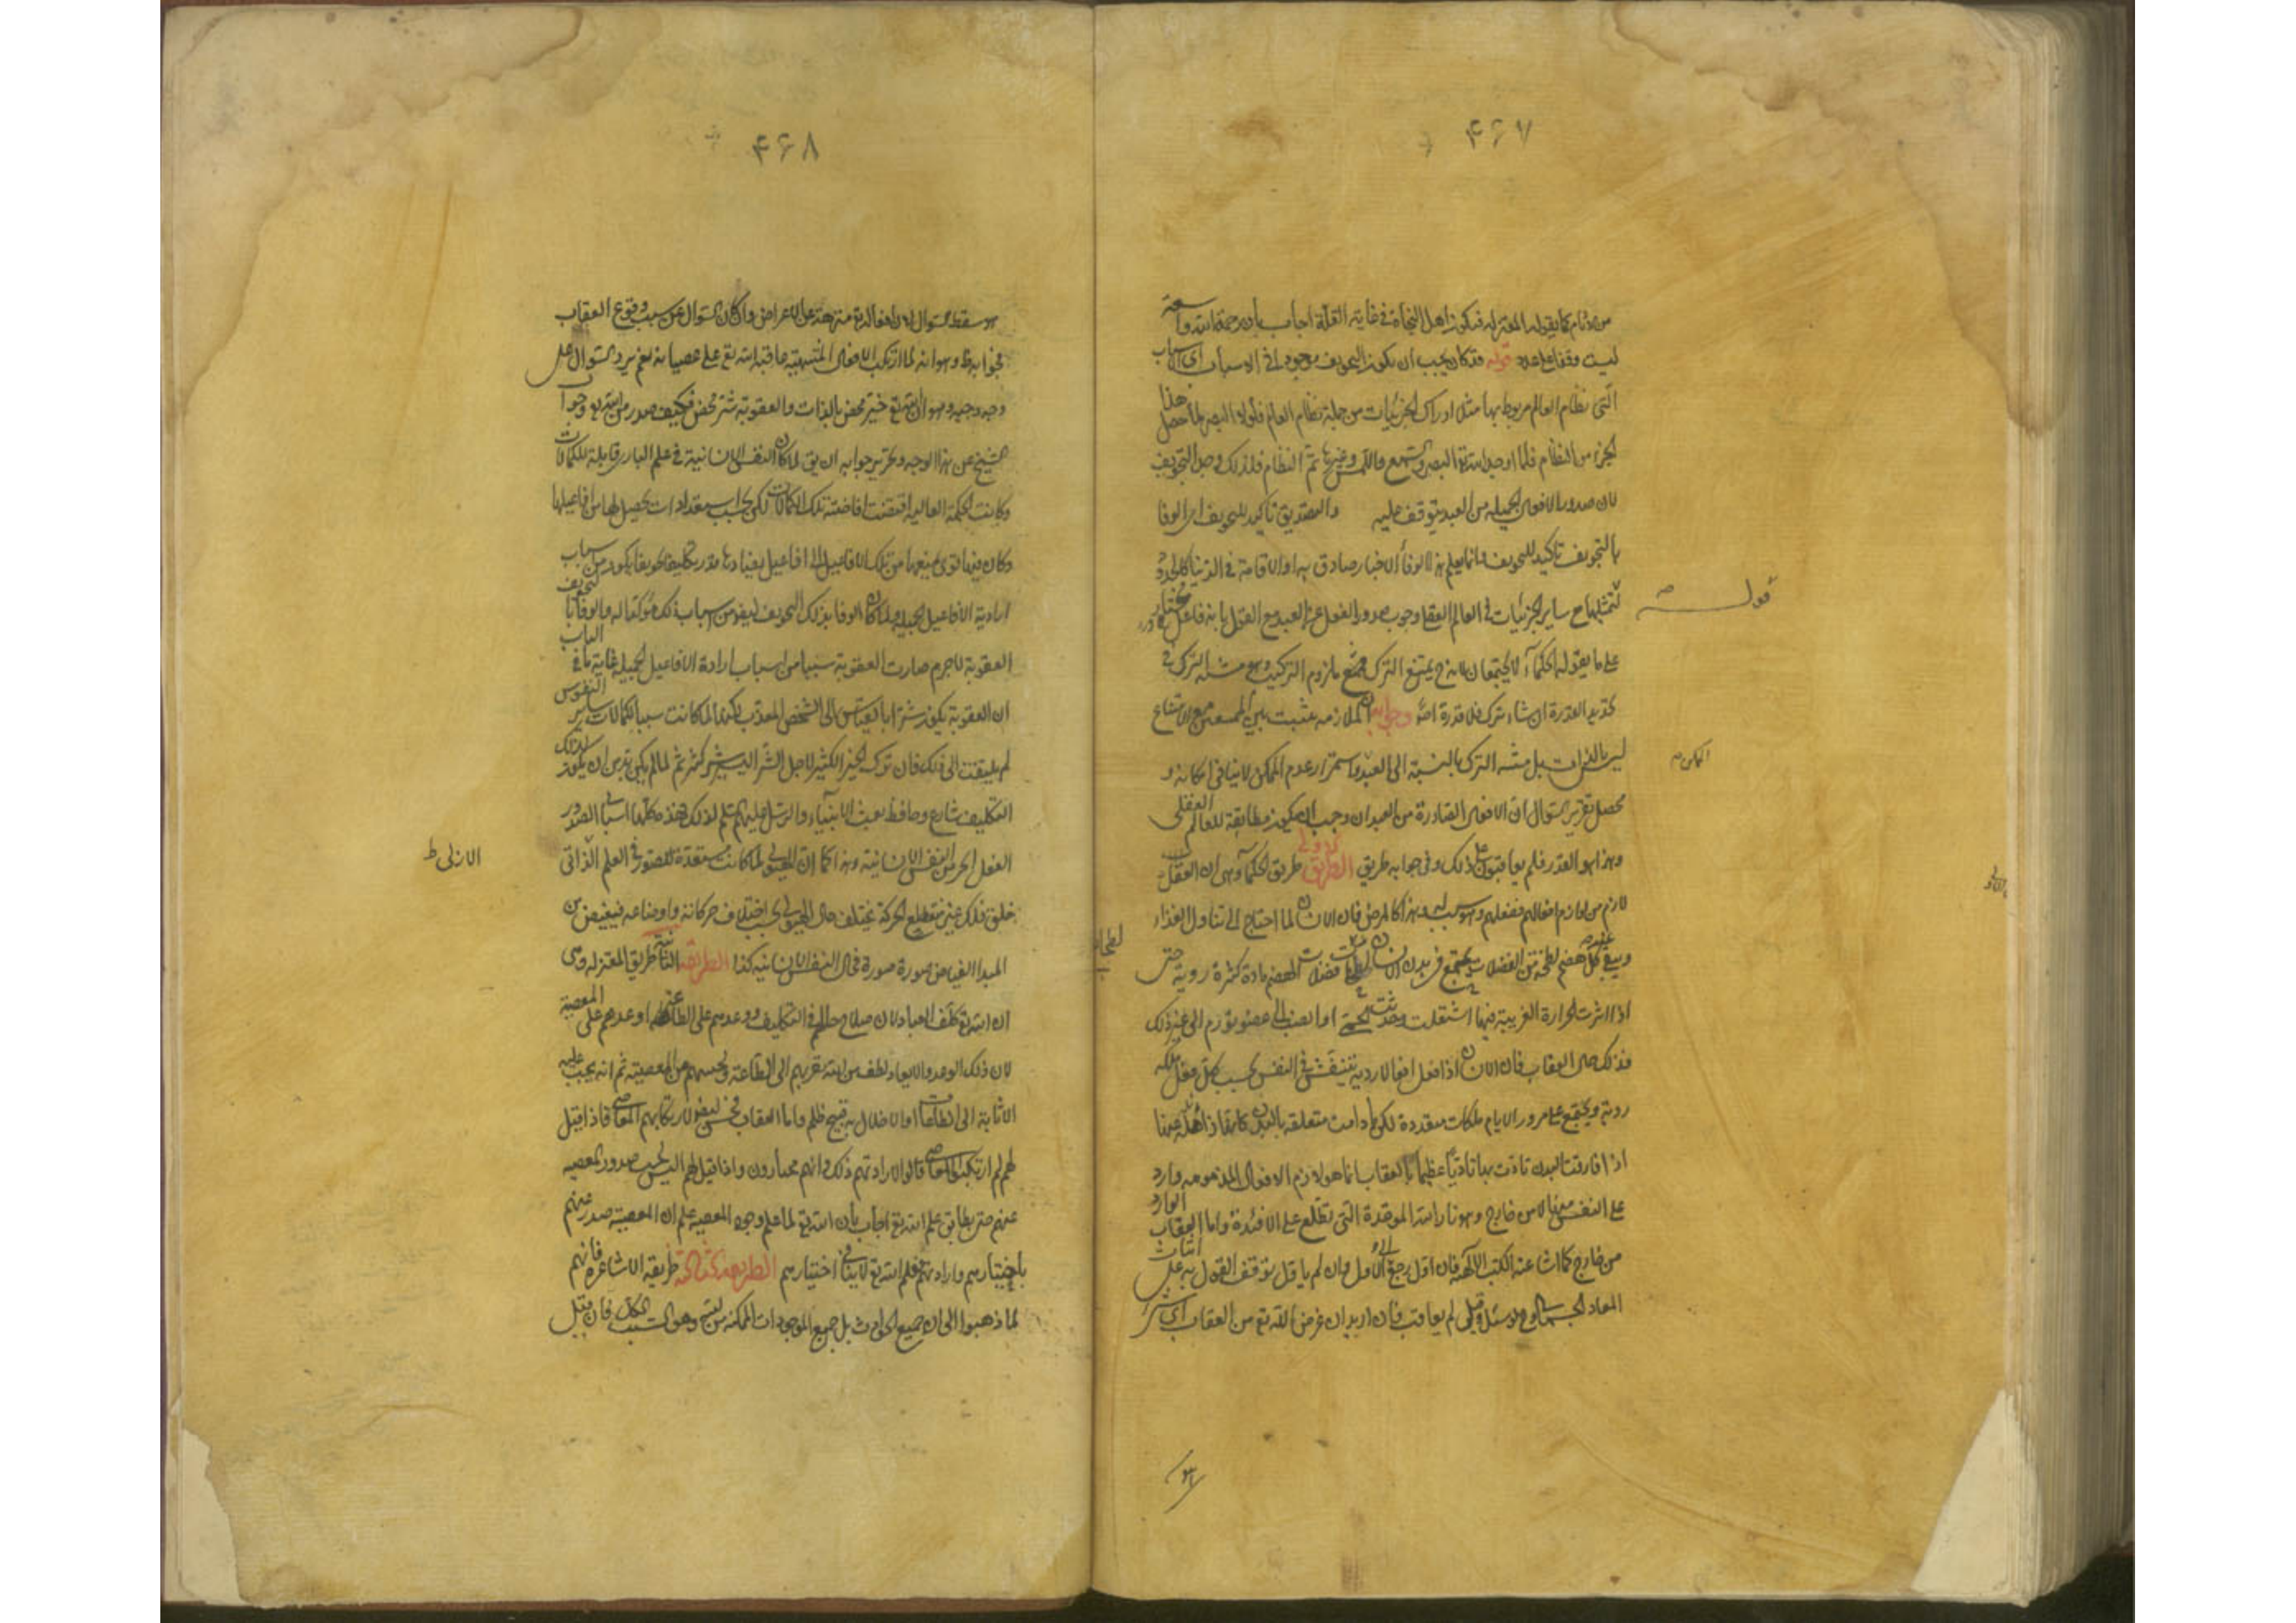 ۴۶۷
من الآثام كما يقوله المعتزله فيكون اهل النجاة فى غاية القلة اجاب بأن رحمة الله واسعة
ليست وقفا على عدد قوله قد كان يجب ان يكون التخويف موجودا فى الاسباب اى اسباب
التى نظام العالم مربوط بها مثل ادراك الجزئيات من جملة نظام العالم فلولا البصر لما حصل هذا
الجزء من النظام فلما اوجد الله تع البصر والسمع واللمس وغيرها تم النظام فلذلك وجد التخويف
لان صدور الافعال الجميلة من العبد يتوقف عليه والتصديق تأكيد للتخويف اى الوفا
بالتخويف تأكيد للتخويف وانما يعلم هذا الوفا الاخبار صادق بها او الاقامة فى الدنيا كالحدود
قوله
لتمثلها مع ساير الجزئيات فى العالم العقلى وجوب صدور الفعل عن العبد مع القول بانه فاعل مختار قادر
على ما يقوله الحكماء لا يجتمعان لانه ح يمتنع الترك فيمتنع ملزوم الترك وهو مشية الترك فى
تحديد القدرة ان شاء ترك فلا قدرة اصلا وجوابه ان الملازمة تثبت بين الممتنعين مع الامتناع
ليس بالذات بل مشية الترك بالنسبة الى العبد واستمرار عدم الممكن لا ينافى امكانه و
الممكن
محصل تقرير السؤال ان الافعال الصادرة من العبد ان وجب ان يكون مطابقة للعالم العقلى
وهذا هو القدر فلم يعاقبون على ذلك وفى جوابه طريق الطريق الاولى طريق الحكماء وهى ان العقاب
لازم من لوازم افعالهم ففعلهم هو سبب له وهذا كالمرض فان الانسان لما احتاج الى تناول الغذاء
ويبقى عند كل هضم لطخة من الفضلات يجتمع فى بدن الانسان فضلات الهضم مادة كثرة روية حتى
اذا اثرت الحرارة الغريبة فيها اشتعلت وحدثت الحمى او انصب الى عضو تورم الى غير ذلك
فذلك حال العقاب فان الانسان اذا فعل افعالا ردية ينتقش فى النفس بحسب كل فعل ملكة
ردية ويجتمع على مرور الايام ملكات متعددة لكن ما دامت متعلقة بالبدن كانها ذاهلة عنها
اذا فارقت البدن تاذت بها تاذيا عظيما فالعقاب انما هو لازم الافعال المذمومه وارد
على النفس منها لا من خارج وهو نار الله الموقدة التى تطلع على الافئدة واما العقاب الوارد
من خارج كما اشار عنه الكتب الالهية فان اول رجع الى الاول وان لم ياول توقف القول به على اثبات
المعاد الجسمانى ولو سئل وقيل لم يعاقب فان اريد ان غرض الله تع من العقاب اى شئ
۴۶۸
هو سقط السؤال لان افعال الله تع منزهة عن الاعراض وان كان السؤال عن سبب وقوع العقاب
فجوابه ظ وهو انه لما ارتكب الافعال المنهية عاقبه الله تع على عصيانه نعم يرد السؤال على
وجه وجيه وهو ان الله تع خير محض بالذات والعقوبة شر محض فكيف صدر من الله تع وجواب
الشيخ عن هذا الوجه وتحرير جوابه ان يق لما كان النفس الانسانية فى علم البارى قابلة للكمالات
وكانت الحكمة العالية اقتضت افاضة تلك الكمالات لكن بحسب استعدادات تحصيل لها من افاعيلها
وكان فيها قوى تمنعها من تلك الافاعيل الى افاعيل يضادها قدر تكليفا تخويفا يكون من اسباب
ارادية الافاعيل الجميلة ولما كان الوفا بذلك التخويف ايضا من اسباب ذلك مؤكدا له والوفا بالتخويف
العقوبة لاجرم صارت العقوبة سببا من اسباب ارادة الافاعيل الجميلة غاية ما فى الباب
ان العقوبة يكون شرا بالقياس الى الشخص المعذب لكنها لما كانت سببا لكمالات ساير النفوس
لم يلتفت الى ذلك فان ترك الخير الكثير لاجل الشر اليسير شر كثير ثم لما لم يكن بد من ان يكون لذلك
التكليف شارع وحافظ بعث الانبياء والرسل عليهم السلم لذلك فهذه كلها اسباب لصدور
الفعل الحسن من النفس الانسانية وهذا كما ان الهيولى لما كانت مستعدة للصور فى العلم الذاتى
الازلى ظ
خلق فلك غير منقطع الحركة يختلف حال الهيولى بحسب اختلاف حركاته واوضاعه فيفيض من
المبدا الفياض صورة صورة فى حال النفس الانسانية كذا الطريقة الثانية طريق المعتزله وهى
ان الله تع كلف العباد لان صلاح حالهم فى التكليف ووعدهم على الطاعة واوعدهم على المعصية
لان ذلك الوعد والايعاد لطف من الله تقربهم الى الطاعة وتحسمهم من المعصية ثم انه يجب عليه
الاثابة الى الطاعات اذ الاخلال به قبيح ظلم واما العقاب فحسن ايضا لارتكابهم المعاصى فاذا قيل
لهم لم ارتكبوا المعاصى قالوا لارادتهم ذلك وانهم مختارون واذا قيل لهم اليس يجب صدور المعصيه
عنهم حتى يطابق علم الله تع اجاب بأن الله تع لما علم وجود المعصية علم ان المعصية صدر عنهم
باختيارهم وارادتهم فعلم الله تع لا ينافى اختيارهم الطريقة الثالثة طريقة الاشاعرة فانهم
لما ذهبوا الى ان جميع الحوادث بل جميع الموجودات الممكنه من الله تع وهو السبب للكل فان قيل